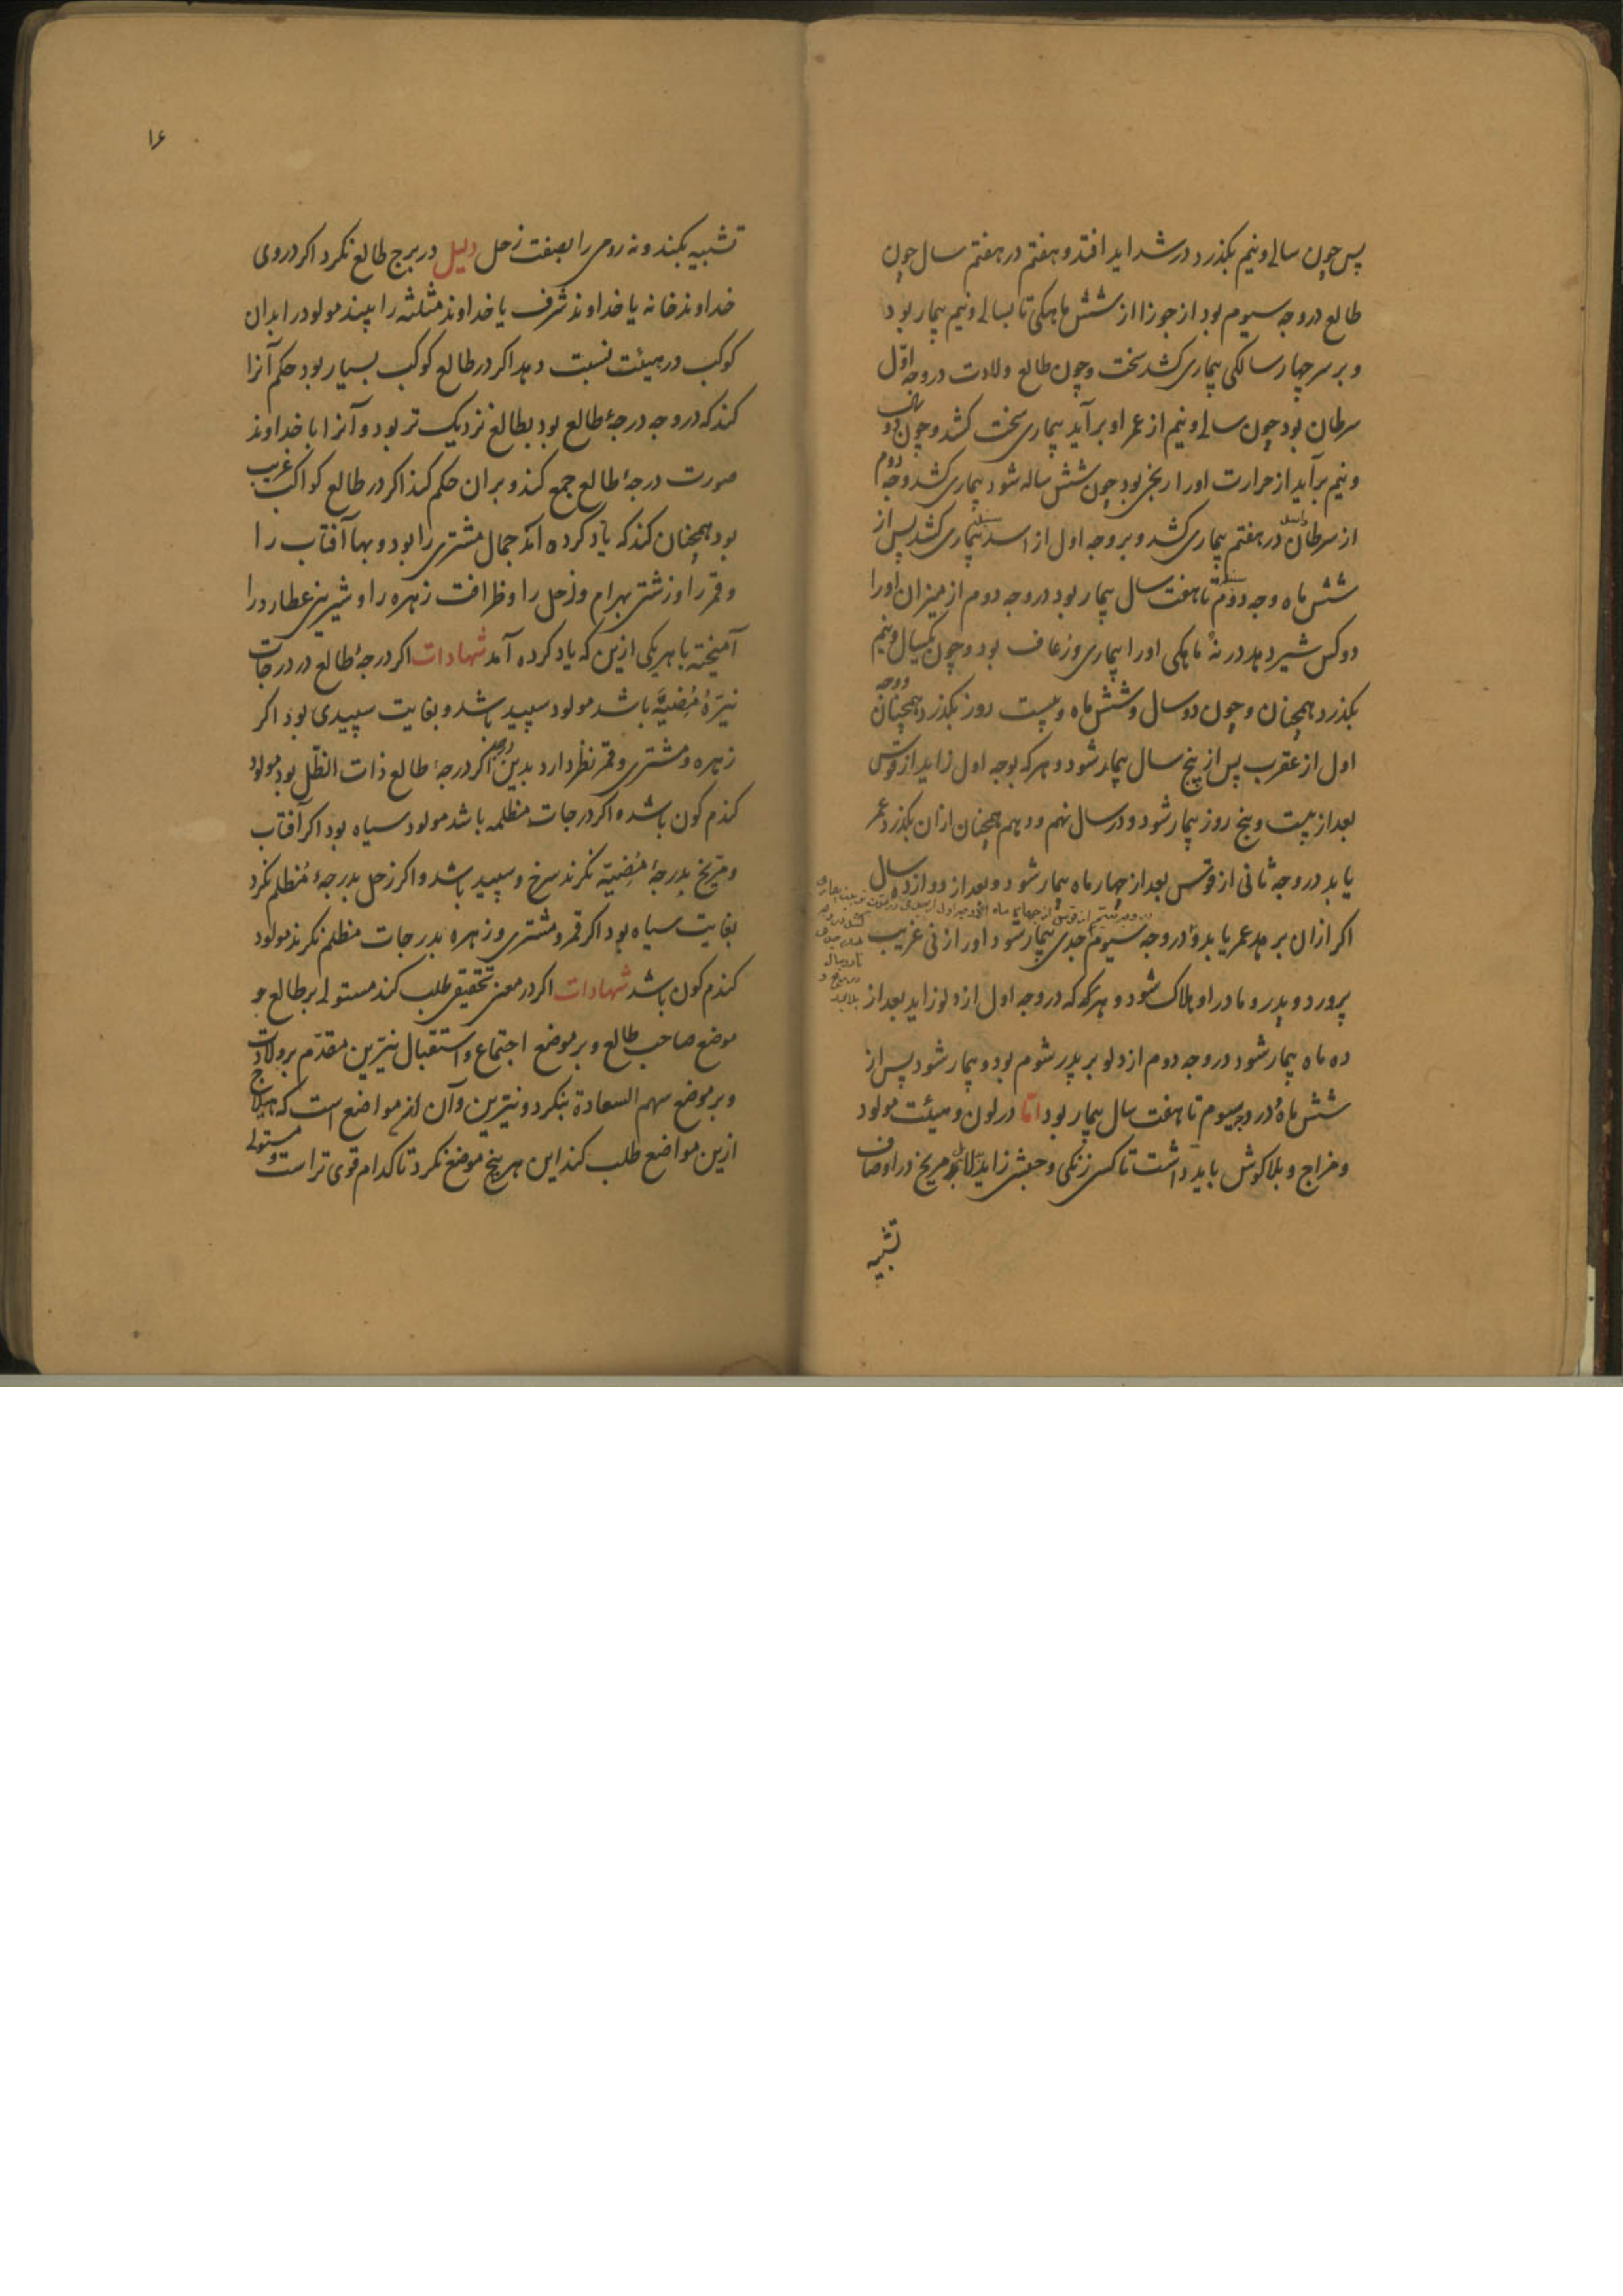 پس چون سالی و نیم بکذرد در شداید افتد و هفتم در هفتم سال چون
طالع در وجه سیوم بود از جوزا از شش ماهکی تا بسالی و نیم بیمار بود
و بر سر چهار سالکی بیماری کشد سخت و چون طالع ولادت در وجه اوّل
سرطان بود چون سالی و نیم از عمر او برآید بیماری سخت کشد و چون دو سال
و نیم برآید از حرارت اورا رنجی بود چون شش ساله شود بیماری کشد و وجه دوم
از سرطان در هفتم بیماری کشد و بر وجه اول از اسد بیماری کشد پس از
شش ماه وجه دوم تا هفت سال بیمار بود در وجه دوم از میزان اورا
دو کس شیر دهد در نه ماهکی اورا بیماری و زعاف بود و چون یکسال و نیم
بکذرد همچنان و چون دو سال و شش ماه و بیست روز بکذرد همچنان ووجه
اول از عقرب پس از پنج سال بیمار شود و هر که بوجه اول زاید از قوس
بعد از بیست و پنج روز بیمار شود و در سال نهم و دهم همچنان ازان بکذرد عمر
یابد در وجه ثانی از قوس بعد از چهار ماه بیمار شود و بعد از دوازده سال
اکر ازان برهد عمر یابد و در وجه سیوم جدی بیمار شود اورا زنی غریب
پرورد و پدر و مادر او هلاک شود و هر که در وجه اول از دلو زاید بعد از
ده ماه بیمار شود در وجه دوم از دلو بر پدر شوم بود و بیمار شود پس از
شش ماه در وجه سیوم تا هفت سال بیمار بود امّا در لون و هیئت مولود
و مزاج و بلا کوش باید داشت تا کسی زنکی و حبشی زاید مریخ در اوصاف
تشبیه
۱۶
تشبیه بکند و نه رومی را بصفت زحل دلیل در برج طالع نکرد اکر در وی
خداوند خانه یا خداوند شرف یا خداوند مثلثه را بیند مولود را بدان
کوکب در هیئت نسبت دهد اکر در طالع کوکب بسیار بود حکم آنرا
کند که در وجه درجهٔ طالع بود بطالع نزدیک تر بود و آنرا با خداوند
صورت درجهٔ طالع جمع کند و بران حکم کند اکر در طالع کواکب غریب
بود همچنان کند که یاد کرده آمد جمال مشتری را بود و بها آفتاب را
و قمر را و زشتی بهرام و زحل را و ظرافت زهره را و شیرینی عطارد را
آمیخته با هر یکی ازین که یاد کرده آمد شهادات اکر درجهٔ طالع در درجات
نیّرهٔ مُضیئه باشد مولود سپید باشد و بغایت سپیدی بود اکر
زهره و مشتری و قمر نظر دارد بدین اکر درجهٔ طالع ذات الظّل بود مولود
کندم کون باشد و اکر در درجات مظلمه باشد مولود سیاه بود اکر آفتاب
و مرّیخ بدرجهٔ مُضیئه نکرند سرخ و سپید باشد و اکر زحل بدرجهٔ مُظلم نکرد
بغایت سیاه بود اکر قمر و مشتری و زهره بدرجات مظلم نکرند مولود
کندم کون باشد شهادات اکر در معنی تحقیق طلب کند مستولی بر طالع و
موضع صاحب طالع و بر موضع اجتماع و استقبال نیّرین مقدّم بر ولادت
و بر موضع سهم السعادة بنکرد و نیّرین و آن از مواضع است که هیلاج
ازین مواضع طلب کند این هر پنج موضع نکرد تا کدام قوی تر است و مستولی